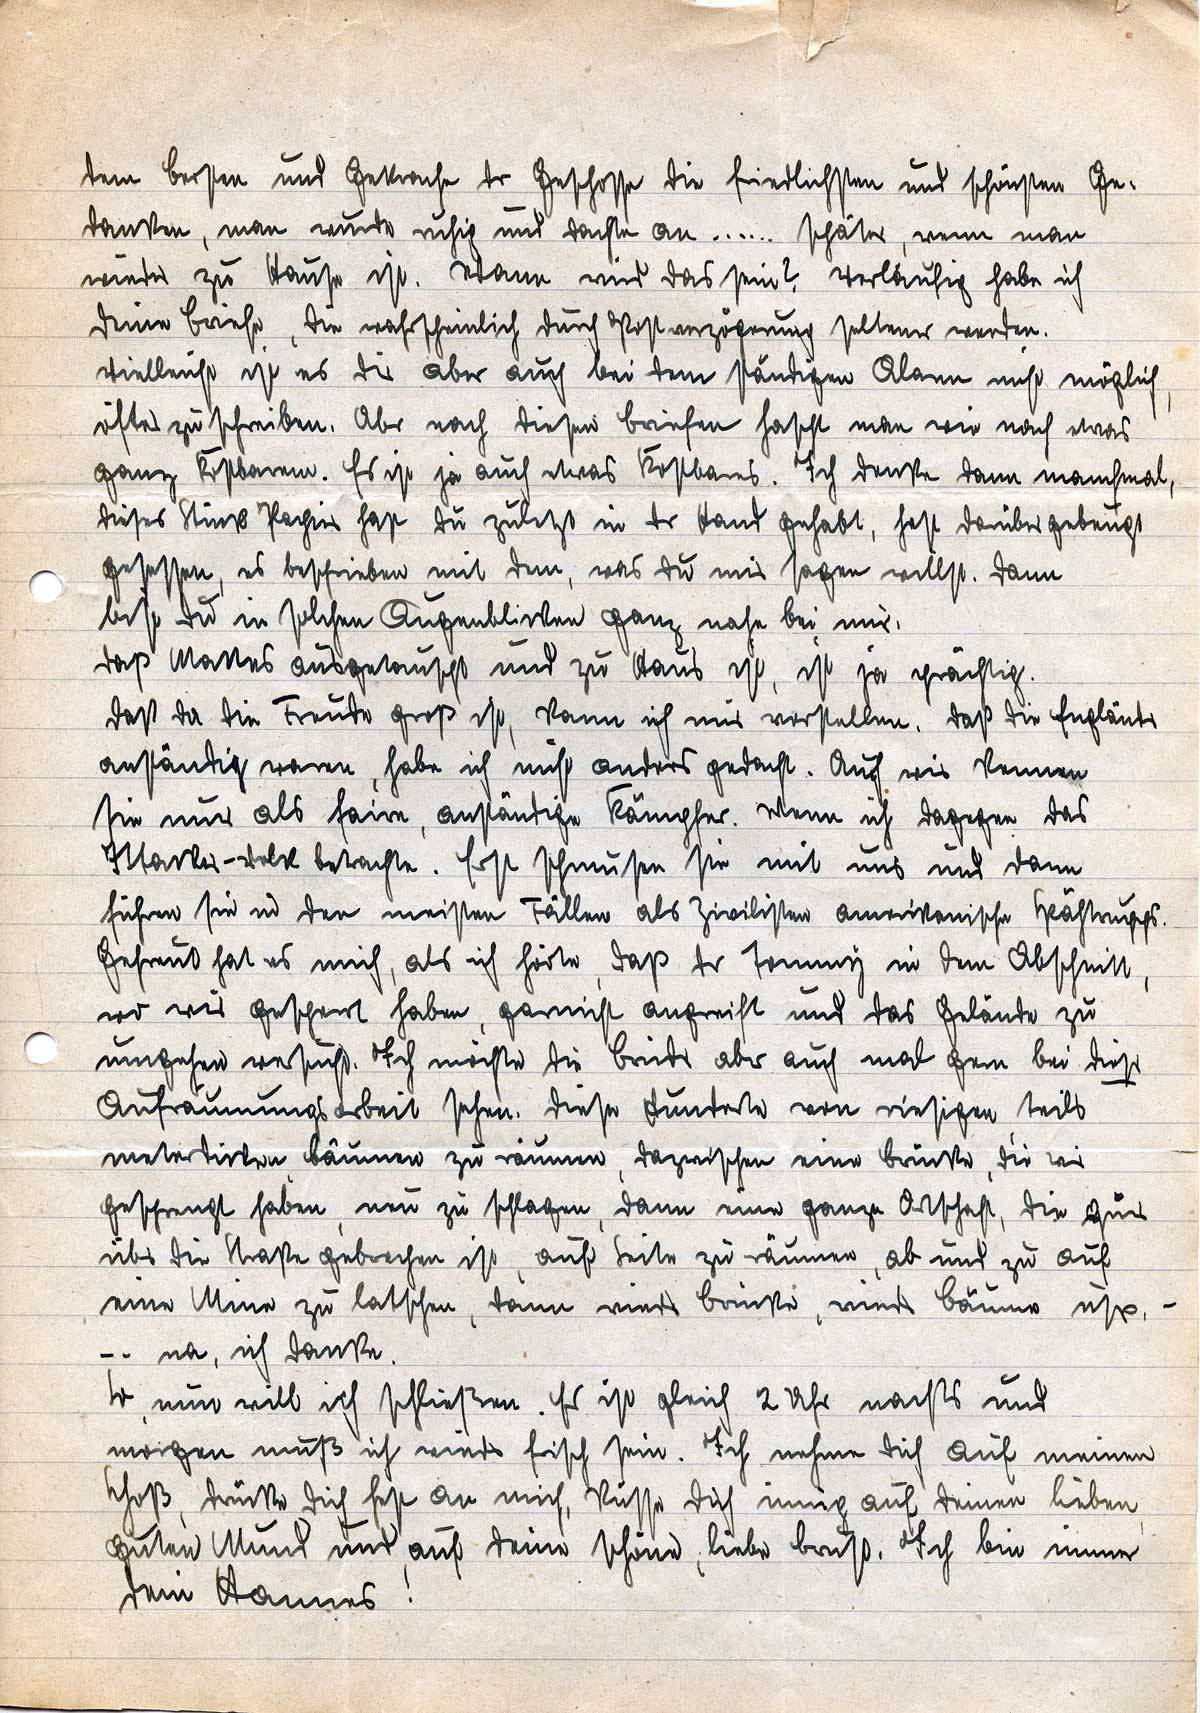 dem Bersten und Gekrache der Geschosse die friedlichsten und schönsten Ge-
danken, man wurde ruhig und dachte an ...... später, wenn man
wieder zu Hause ist. Wann wird das sein? Vorläufig habe ich
Deine Briefe, die wahrscheinlich durch Postverzögerung seltener werden.
Vielleicht ist es Dir aber auch bei dem ständigen Alarm nicht möglich,
öfter zu schreiben. Aber nach diesen Briefen hascht man wie nach etwas
ganz Kostbarem. Es ist ja auch etwas Kostbares. Ich denke dann manchmal,
dieses Stück Papier hast Du zuletzt in der Hand gehabt, hast darüber gebeugt
gesessen, es beschrieben mit dem, was Du mir sagen willst. Dann
bist Du in solchen Augenblicken ganz nahe bei mir.
Daß Mattes ausgetauscht und zu Haus ist, ist ja prächtig.
Daß da die Freude groß ist, kann ich mir vorstellen. Daß die Engländer
anständig waren, habe ich nicht anders gedacht. Auch wir kennen
sie nur als faire, anständige Kämpfer. Wenn ich dagegen das
Ittaker-Volk betrachte. Erst schmusen sie mit uns und dann
führen sie in den meisten Fällen als Zivilisten amerikanische Spähtrupps.
Gefreut hat es mich, als ich hörte, daß der Tommy in dem Abschnitt,
wo wir gesperrt haben, garnicht angreift und das Gelände zu
umgehen versucht. Ich möchte die Brüder aber auch mal gern bei dieser
Aufräumungsarbeit sehen. Diese Hunderte von riesigen, teils
meterdicken Bäumen zu räumen, dazwischen eine Brücke, die wir
gesprengt haben, neu zu schlagen, dann eine ganze Ortschaft, die quer
über die Straße gebrochen ist, auf Seite zu räumen, ab und zu auf
eine Mine zu latschen, dann wieder Brücke, wieder Bäume usw. -
-- na, ich danke.
So, nun will ich schließen. Es ist gleich 2 Uhr nachts und
morgen muß ich wieder frisch sein. Ich nehme Dich auf meinen
Schoß, drücke Dich fest an mich, küsse Dich innig auf Deinen lieben,
guten Mund und auf Deine schöne, liebe Brust. Ich bin immer
Dein Hannes!